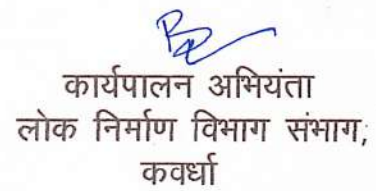 कार्यपालन अभियंता
लोक निर्माण विभाग संभाग,
कवर्धा